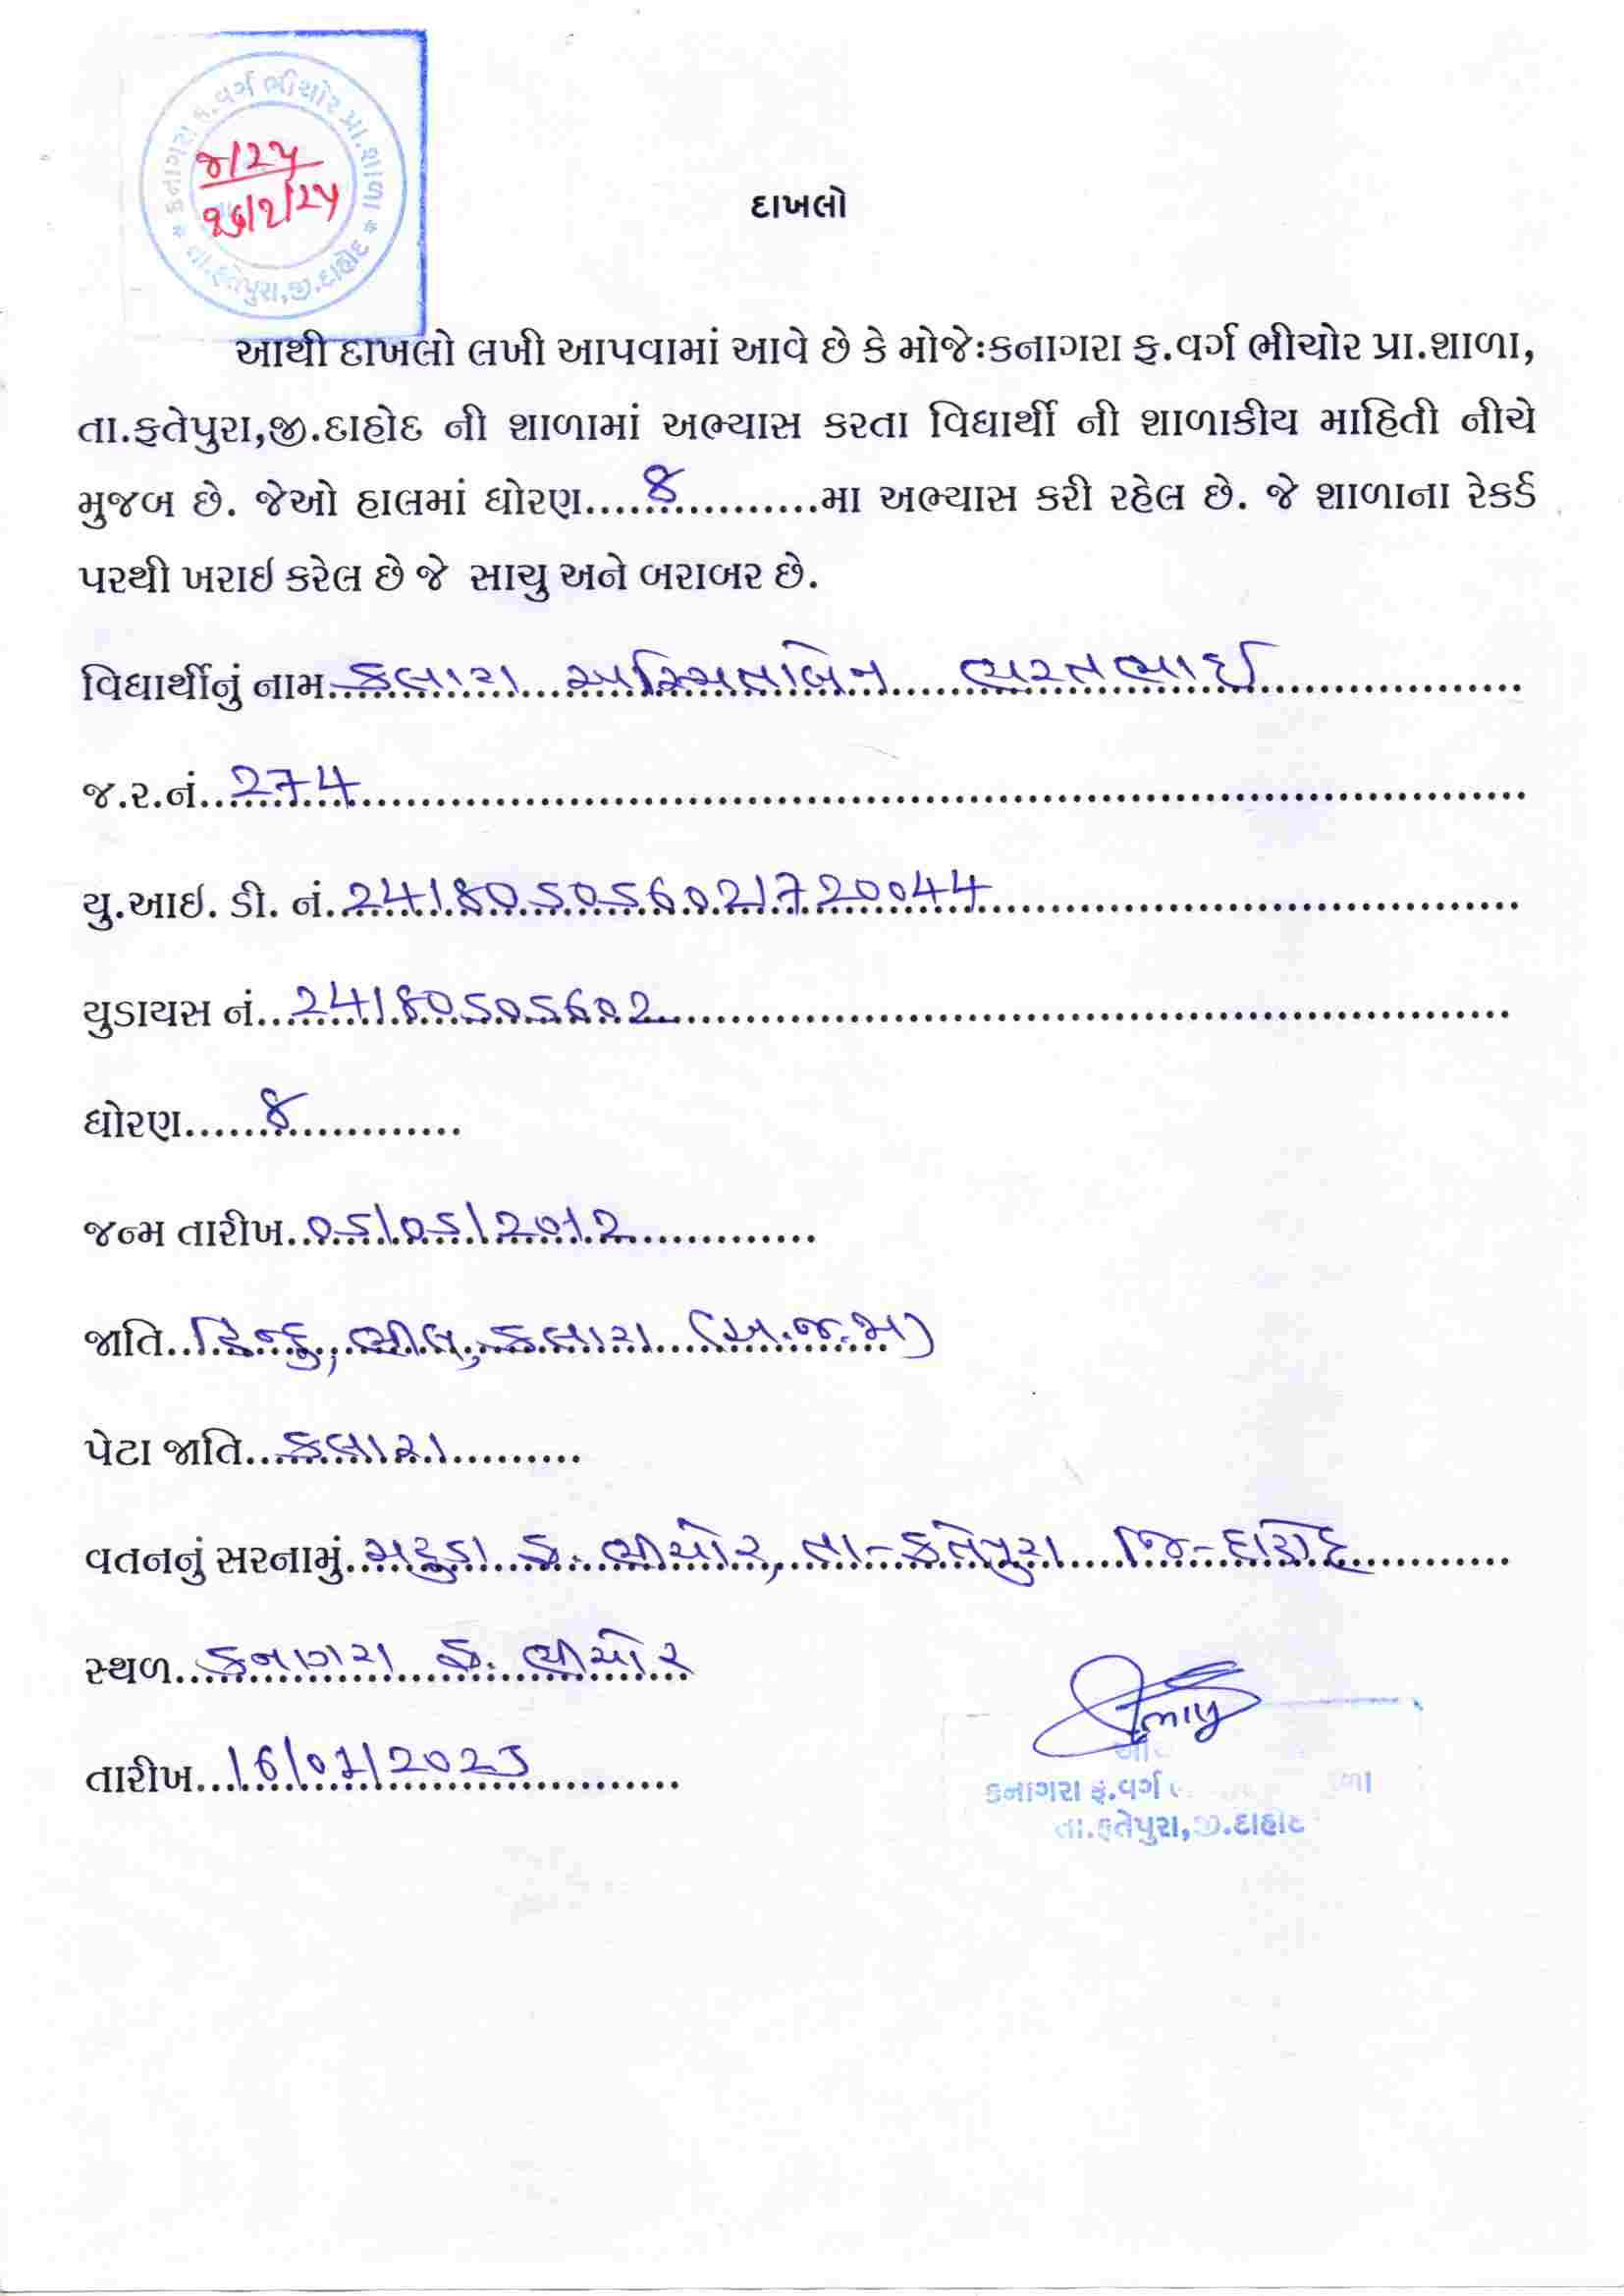 કનાગરા ફ.વર્ગ ભીચોર પ્રા.શાળા
તા.ફતેપુરા,જી.દાહોદ
દાખલો
આથી દાખલો લખી આપવામાં આવે છે કે મોજે:કનાગરા ફ.વર્ગ ભીચોર પ્રા.શાળા,
તા.ફતેપુરા,જી.દાહોદ ની શાળામાં અભ્યાસ કરતા વિદ્યાર્થી ની શાળાકીય માહિતી નીચે
મુજબ છે. જેઓ હાલમાં ધોરણ.....8................મા અભ્યાસ કરી રહેલ છે. જે શાળાના રેકર્ડ
પરથી ખરાઇ કરેલ છે જે સાચુ અને બરાબર છે.
વિદ્યાર્થીનું નામ કલારા અસ્મિતાબેન ભરતભાઈ
જ.ર.નં. 274
યુ.આઇ. ડી. નં. 241805056021720044
યુડાયસ નં. 24180505602
ધોરણ 8
જન્મ તારીખ 05/05/2012
જાતિ હિન્દુ, ભીલ, કલારા (અ.જ.જા)
પેટા જાતિ કલારા
વતનનું સરનામું ફ. ભીચોર, તા-ફતેપુરા જિ-દાહોદ
સ્થળ કનાગરા ફ. ભીચોર
તારીખ 16/01/2025
કનાગરા ફ.વર્ગ
તા.ફતેપુરા,જી.દાહોદ